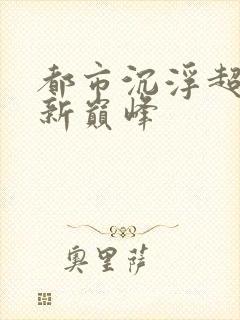 都市沉浮超
新巅峰
奥里萨